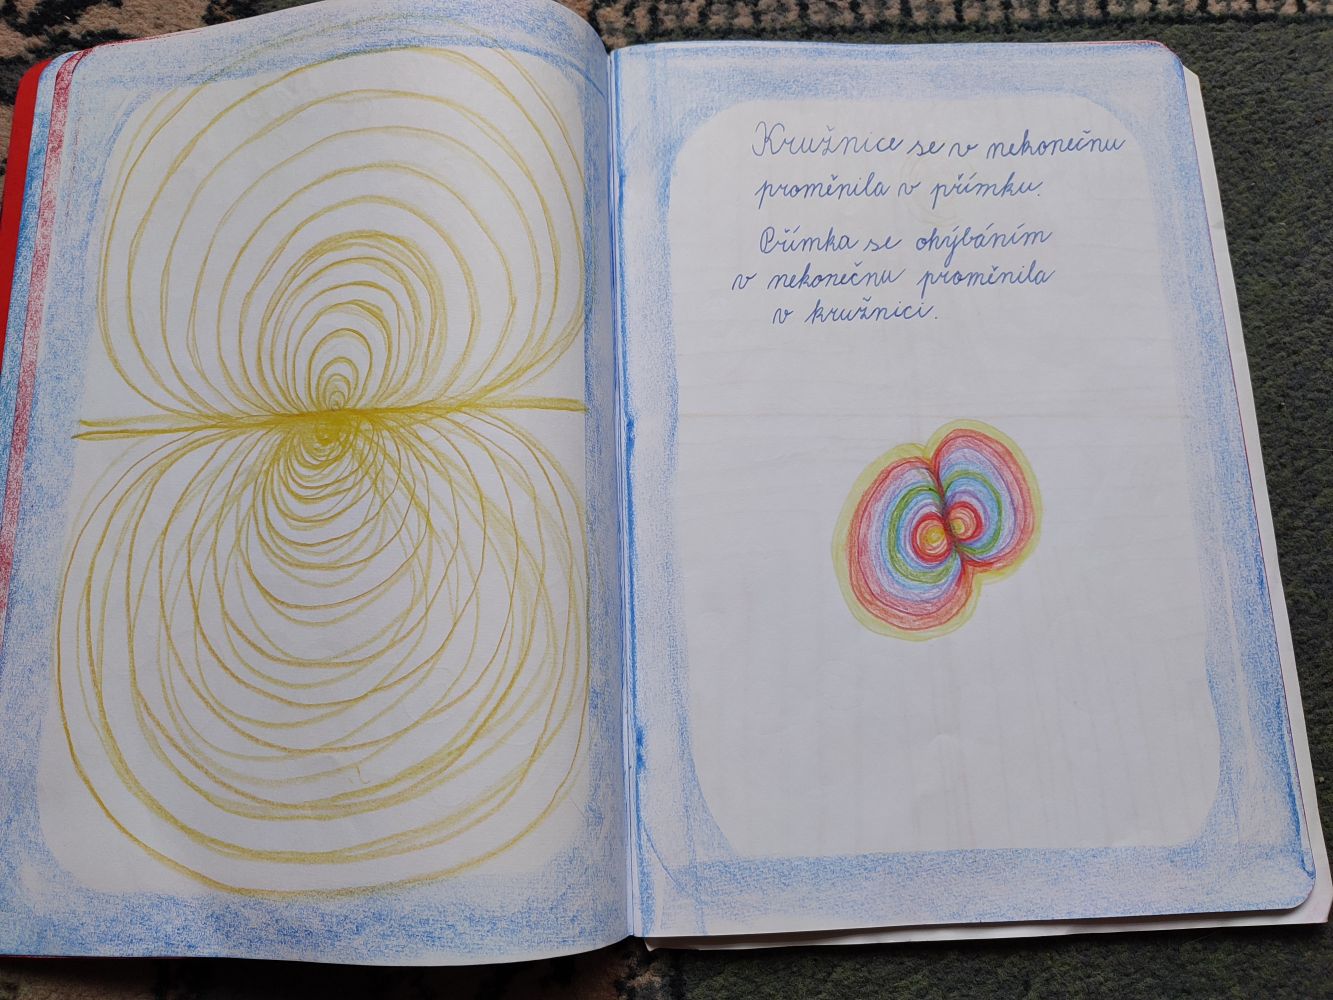 Kružnice se v nekonečnu
proměnila v přímku.
Přímka se ohýbáním
v nekonečnu proměnila
v kružnici.